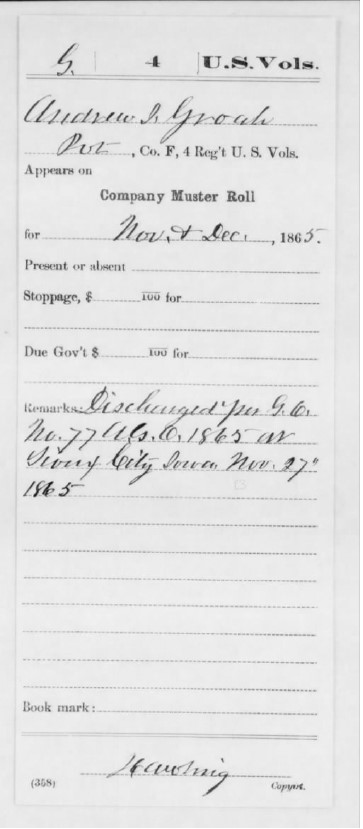 G. | 4 | U.S. Vols.
Andrew J. Groah
Pvt, Co. F, 4 Reg't U. S. Vols.
Appears on
Company Muster Roll
for Nov. & Dec., 1865.
Present or absent
Stoppage, $ 100 for
Due Gov't $ 100 for
Remarks: Discharged per G.O.
No. 77 A.G.O. 1865 at
Sioux City Iowa Nov. 27"
1865
Book mark:
(358) Copyist.